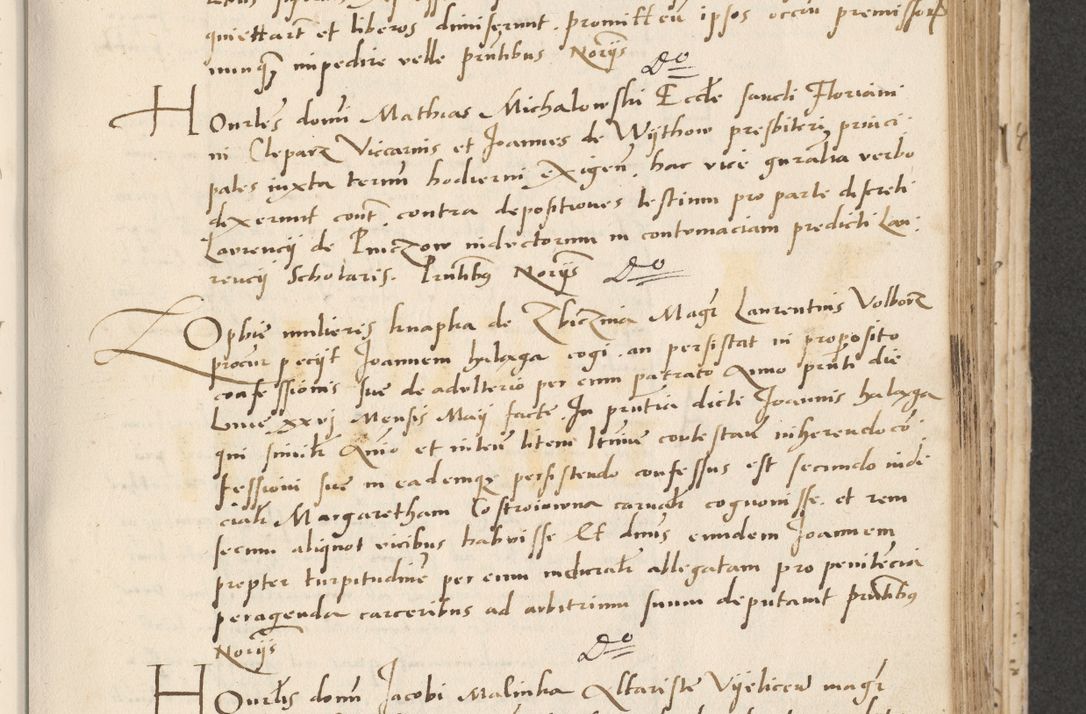 quiettarūt et liberos dimiserunt. promitteñ ipsos occoñ premissorꝝ
nunqꝫ impedire velle pñtibus Norijs
Do
Honrles domī Mathias Michalowski Eccłe sancti Floriani
ni Cleparz Vicarius et Joannes de Wythow presbiteri princi-
pales iuxta termī hodierni exigeñ. hac vice guralia verbo
dixerunt cont̃ contra depositiones testium pro parte discreti
Laurencij de Pniczow inductorum in contumaciam predicti Lau-
rencij Scholaris. Pñtibꝫ Norijs Do
Zophie mulieris knapka de Zbicznia Magr̃ Laurentius Volborz
procur̃ pecijt Joannem halaga cogi. an persistat in proposito
confessionis sue de adulterio per eum patrato Anno pñti die
Lune xxvj Mensis Maij facte. In pñtia dicti Joannis halaga
qui simili Anīo et intuñ litem ltīme contestañ inherendo cō-
fessioni sue in eademqꝫ persistendo confessus est secundo iudi-
cialr Margaretham Costroiowna carnalr cognouisse. et rem
secum aliquot vicibus habuisse Et dñus eundem Joannem
propter turpitudinē per eum iudicialr allegatam pro penitēcia
peragenda carceribus ad arbitrium suum deputauit pñtibꝫ
Norijs Do
Honrlis domī Jacobi Malinka Altariste Vijelicen̄ magr̃